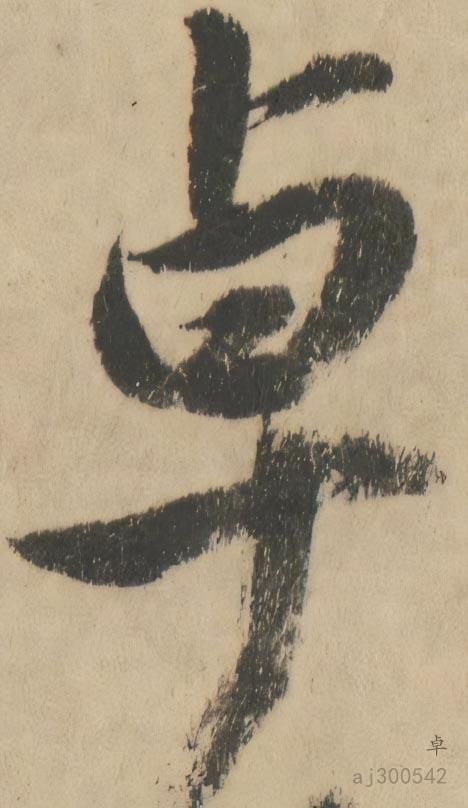 卓
卓
aj300542